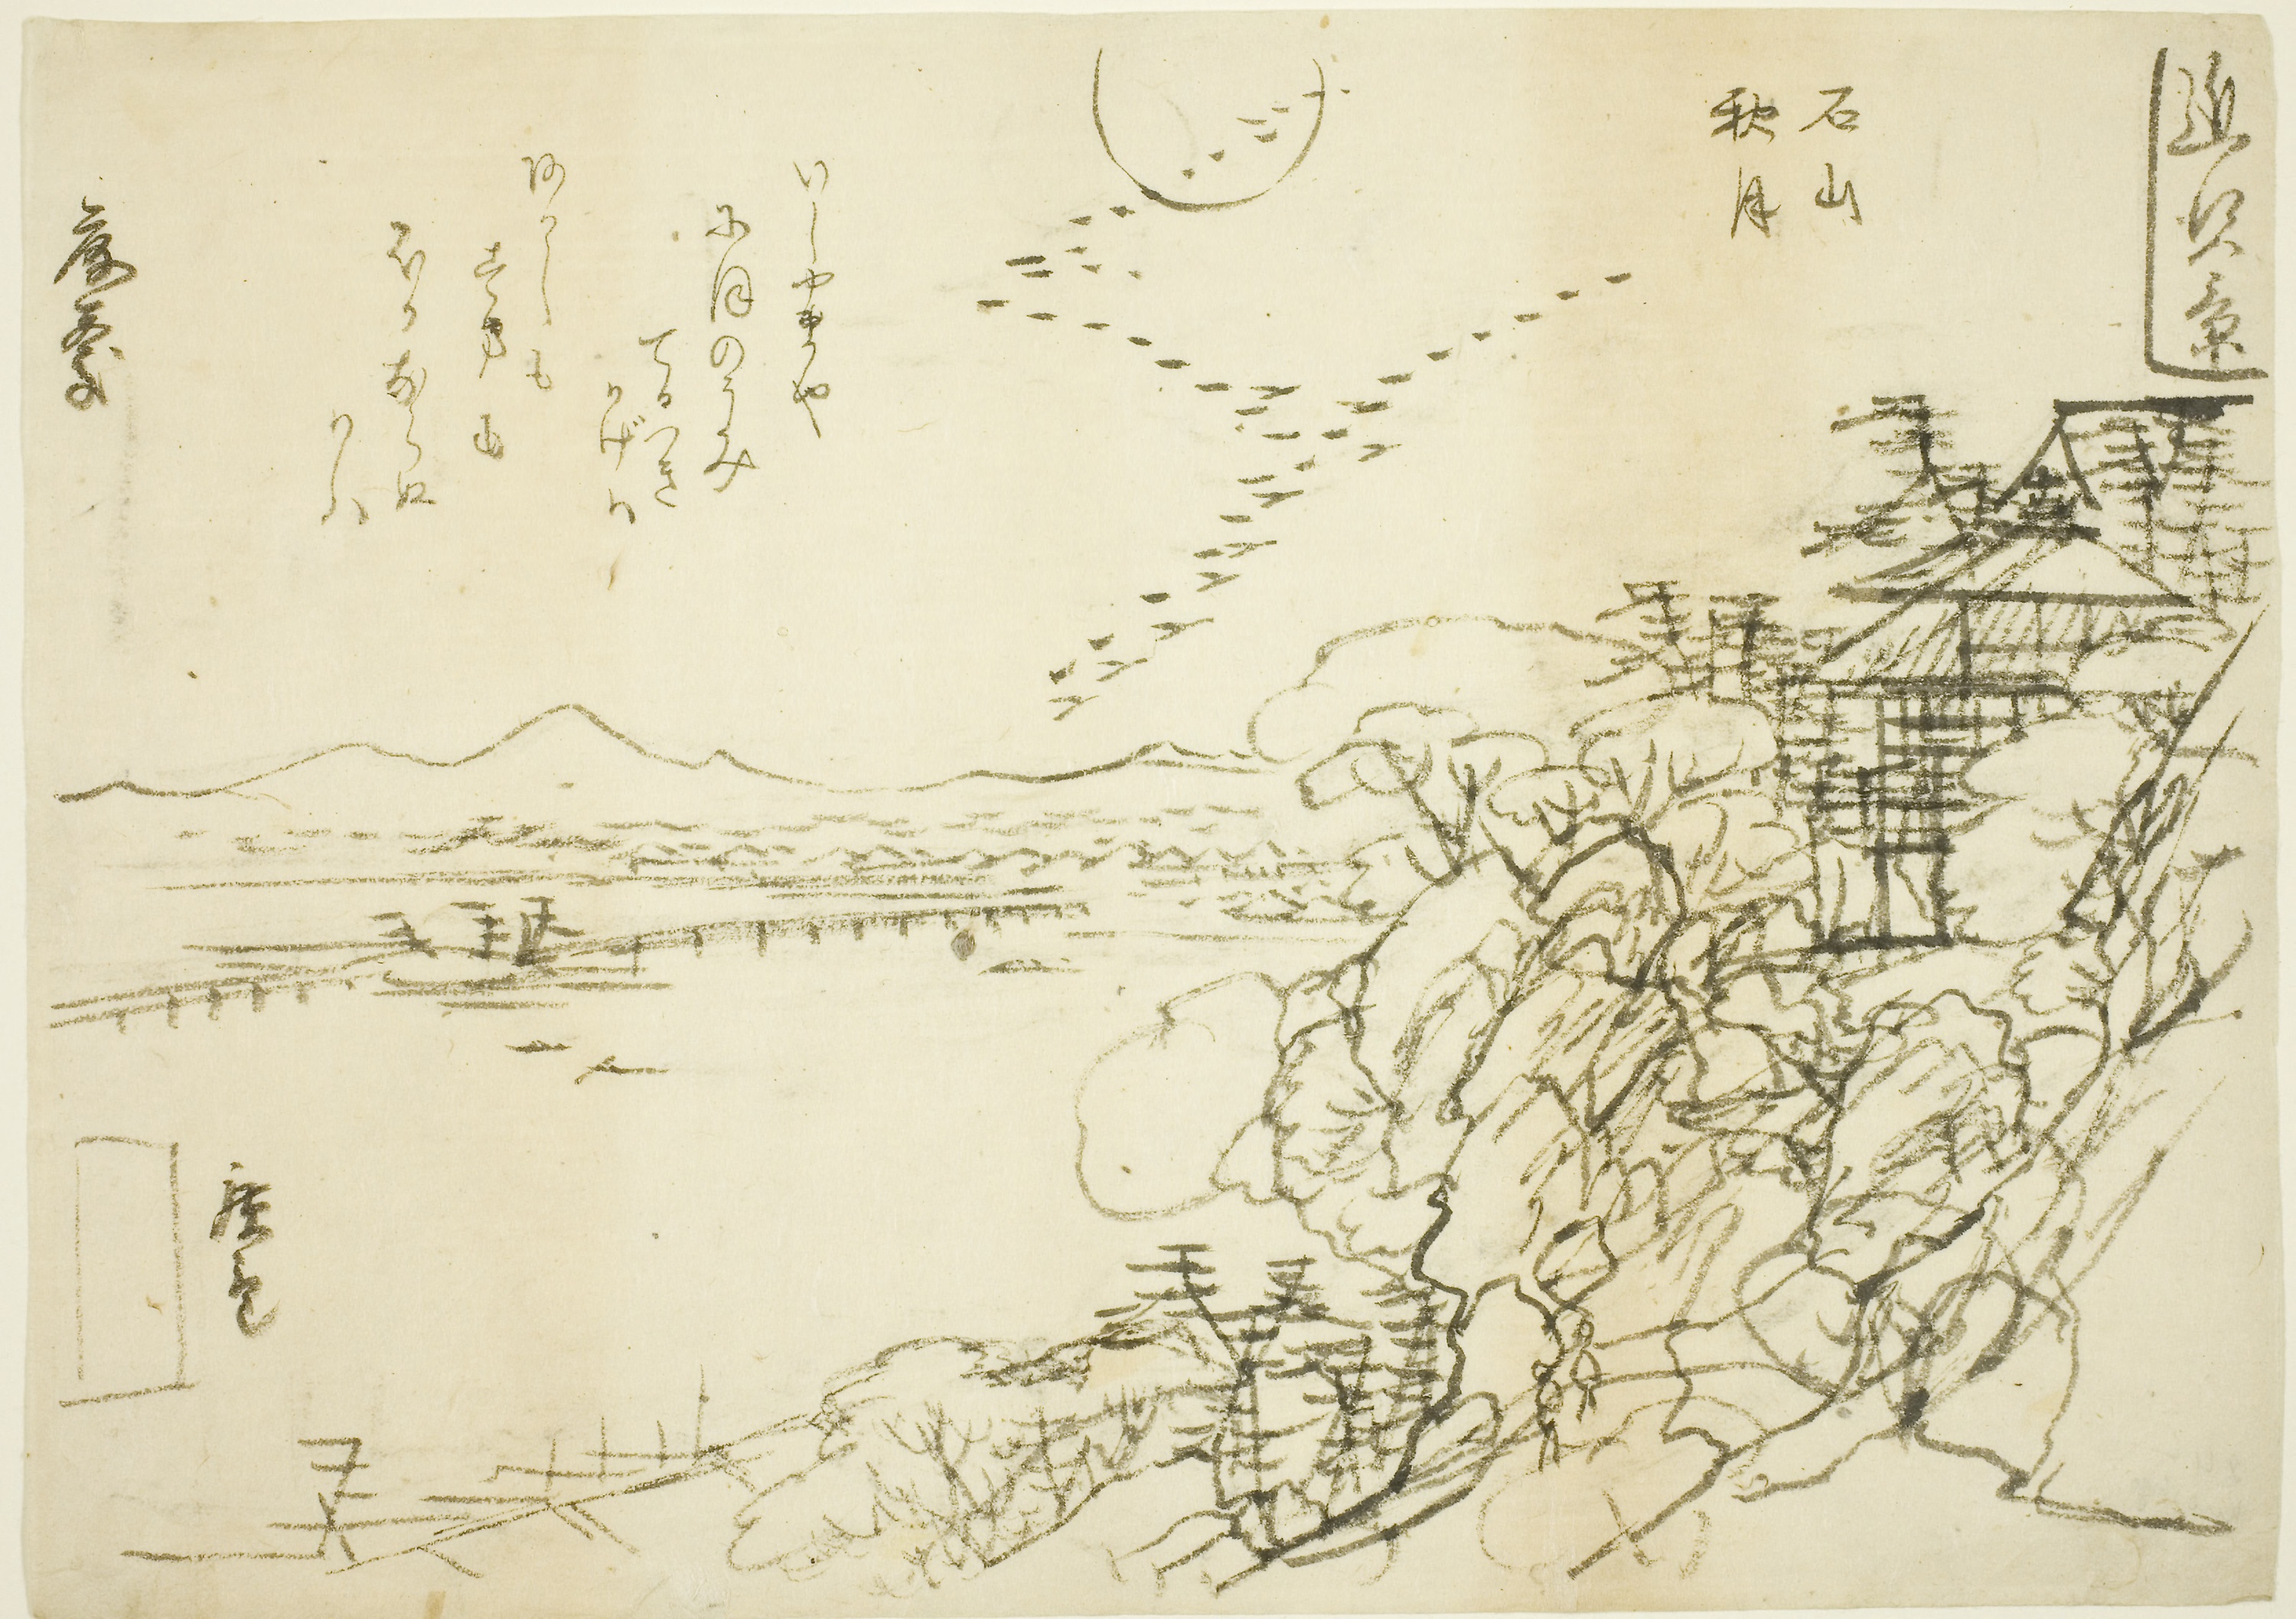 近江八景
石山
秋月
いしやまや
にほのうみ
てるつき
かげは
あかしも
すまも
ほかならぬ
かな